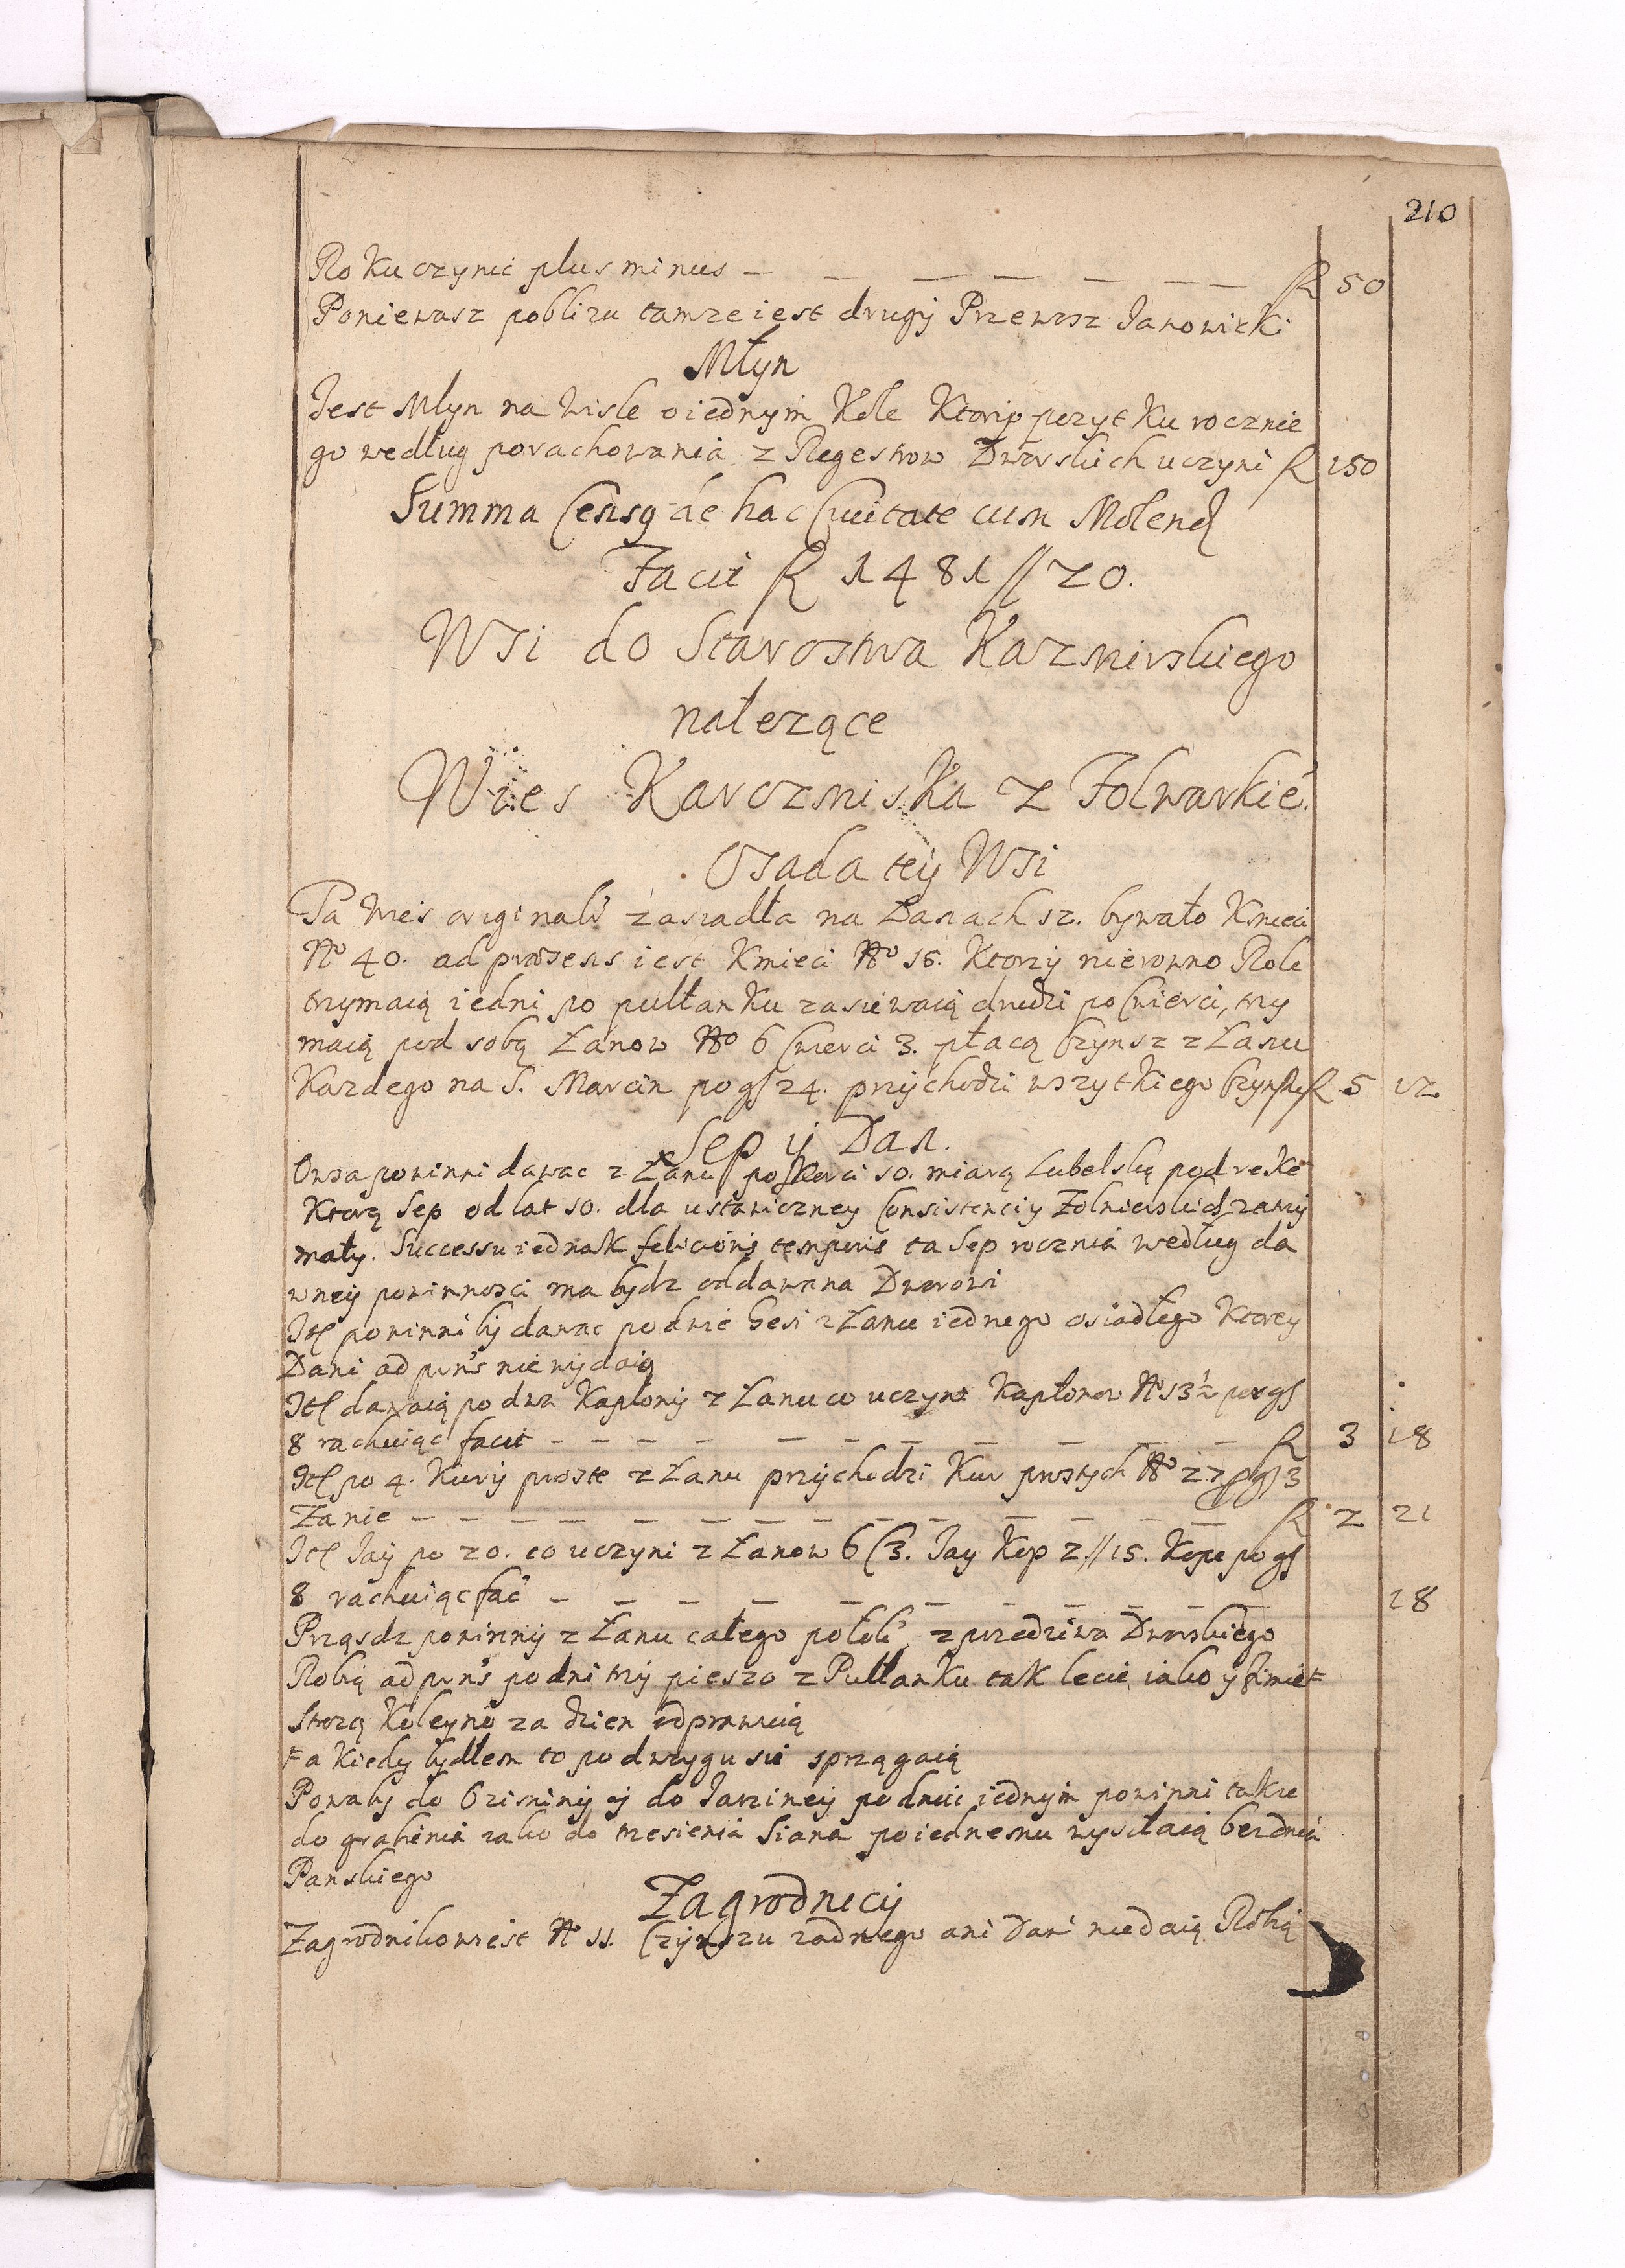 210
Roku czynić plus minus — — — — — — — fl 50
Poniewasz poblizu tamze iest drugÿ Przewosz Janowicki
Młyn
Jest Młyn na Wisle o iednÿm Kole Ktorÿ pozytku rocznie
go według porachowania z Regestrow Dworskich uczyni fl 150
Summa Censq de hac Civitate cum Molend
Facit fl 1481 // 20.
Wsi do Starostwa Kazmirskiego
należące
Wies Karczmiska z Folwarkie.
Osada teÿ Wsi
Ta Wies originalr zasiadła na Łanach 12. bywało Kmieci
No 40. ad præsens iest Kmieci No 16. Ktorzÿ nierowno Role
trzymaią iedni po pułłanku zasiewaią drudzi po Cwierci, trzy
maią pod sobą Łanow No 6 Cwierci 3. płacą Czynsz z Łanu
Kazdego na S. Marcin po gr 24. przÿchodzi wszytkiego Czynszu fl 5 12
Sep ÿ Dań.
Owsa powinni dawac z Łanu po Korci 10. miarą Lubelską pod reke
Ktorą Sep od lat 10. dla ustawiczney Consistenciy Zołnierskich zatrzÿ
mały. Successu iednak felicioris temporis ta Sep rocznia według da
wneÿ powinnosci ma bydz oddawana Dworowi
Itē powinni bÿ dawac po dwie Gesi z Łanu iednego osiadłego Ktorey
Dani ad prns nie wÿdaią
Itē dawaią po dwa Kapłonÿ z Łanu co uczyni Kapłonow No 13½ po gr
8 rachuiąc facit — — — — — — — — — — fl 3 18
Itē po 4. Kurÿ proste z Łanu przÿchodzi Kur prostych No 27 p gr 3
Zanie — — — — — — — — — — — — fl 2 21
Itē Jaÿ po 20. co uczyni z Łanow 6 C 3. Jay Kop 2 // 15. Kope po gr
8 rachuiąc fac — — — — — — — — — — 18
Prząsdz powinnÿ z Łanu całego po łok z przedziwa Dworskiego
Robią ad prns po dni trzÿ pieszo z Pułłanku tak lecie iako y zimie
Strozą Koleyno za dzien odprawuią
a kiedy bydłem to po dwzygu sie sprzągaią
Powabÿ do Ozimÿ ÿ do Jarzineÿ po dniu iednÿm powinni takze
do grabienia iako do trzesienia Siana po iednemu wysyłaią bez dnia
Panskiego
Zagrodnicÿ
Zagrodnikow iest No 11. Czÿnszu zadnego ani Dani nie daią Robią